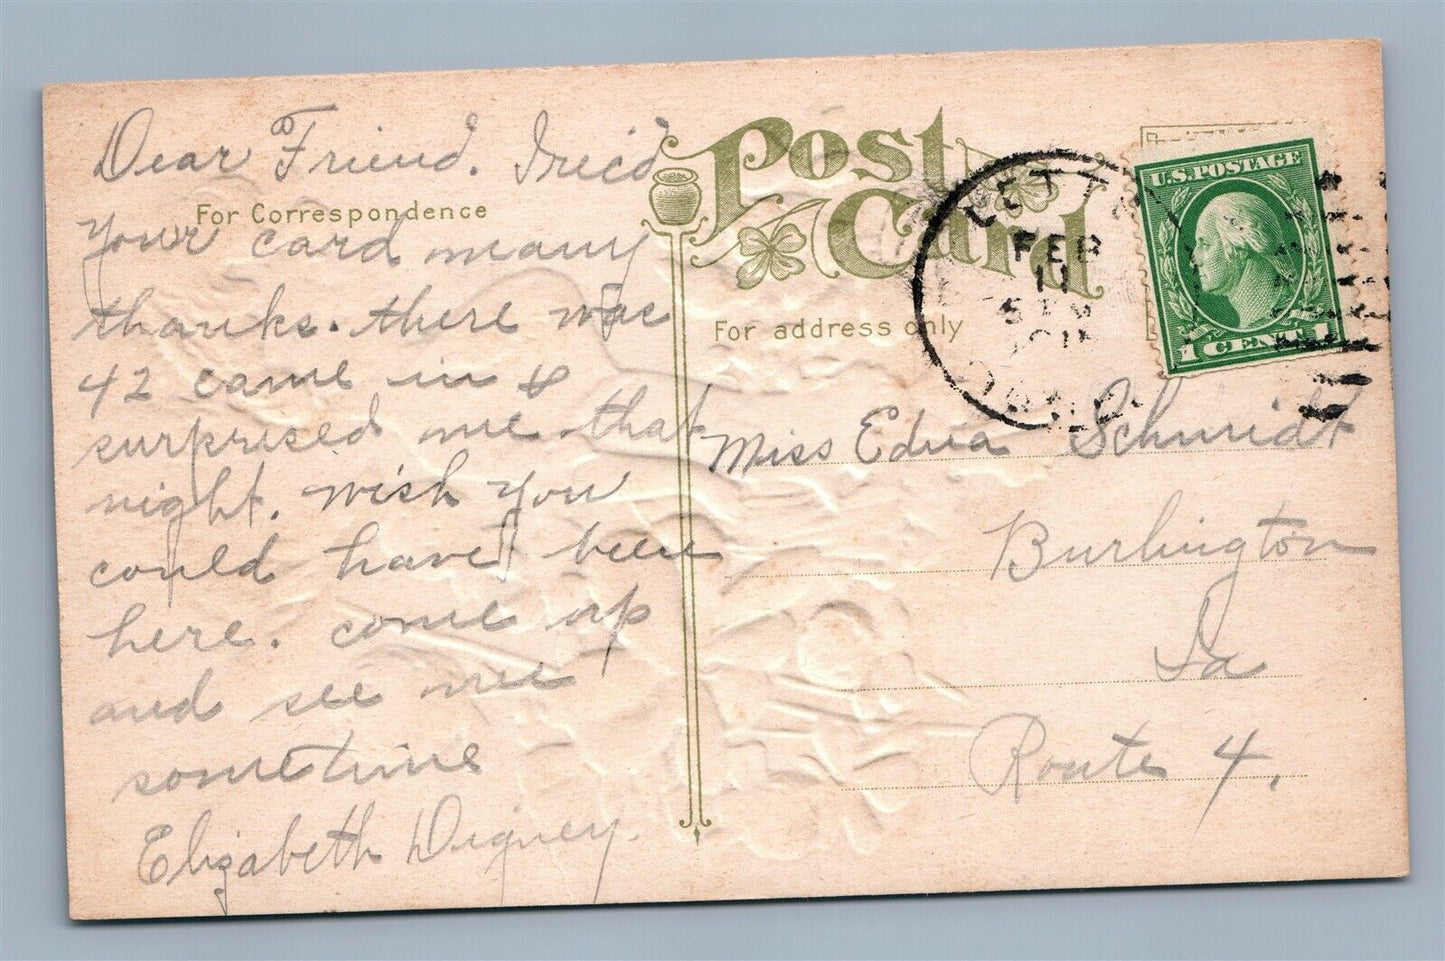 Dear Friend. I rec'd
For Correspondence
Your card many
thanks. there was
42 came in &
surprised me that
night. wish you
could have been
here. come up
and see me
sometime
Elizabeth Digney.
Post
Card
For address only
LETTS
FEB
11
U.S. POSTAGE
1 CENT 1
Miss Edna Schmidt
Burlington
Ia
Route 4.